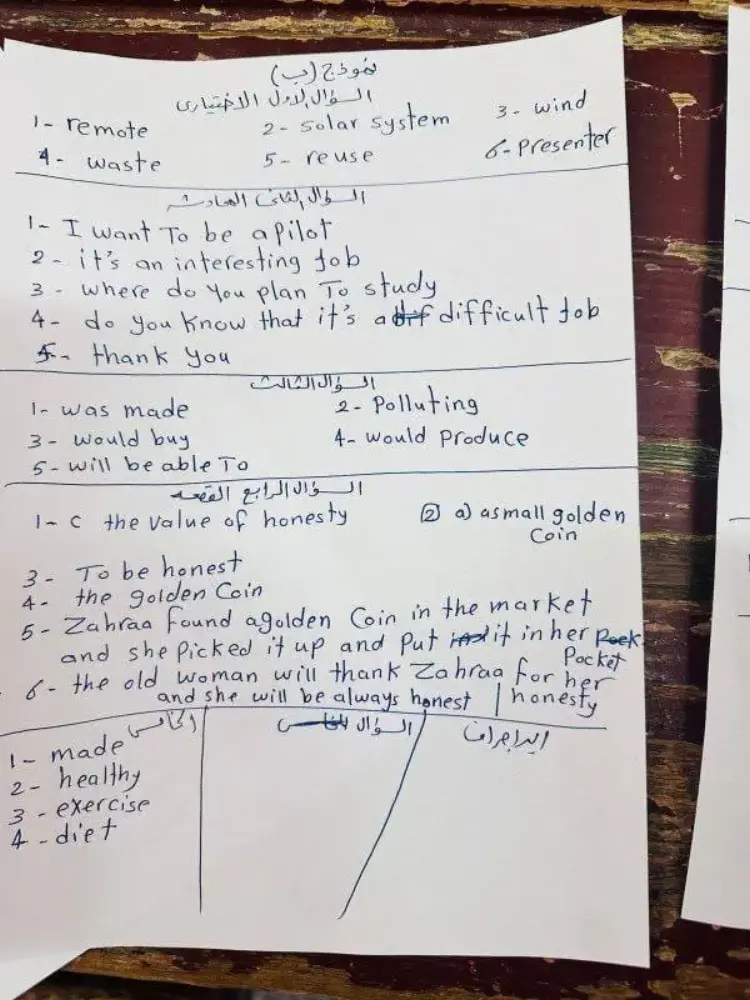 نموذج (ب)
السؤال الاول الاختيارى
1- remote 2- solar system 3- wind
4- waste 5- reuse 6- Presenter
السؤال الثانى المحادثه
1- I want To be a pilot
2- it's an interesting Job
3- where do You plan To study
4- do you know that it's a difficult Job
5- thank you
السؤال الثالث
1- was made 2- Polluting
3- would buy 4- would Produce
5- will be able To
السؤال الرابع القصه
1- c the value of honesty ② a) a small golden
Coin
3- To be honest
4- the golden Coin
5- Zahraa found a golden Coin in the market
and she Picked it up and Put it in her
Pocket
6- the old woman will thank Zahraa for her
and she will be always honest | honesty
الخامس السؤال البراجراف
1- made
2- healthy
3- exercise
4- diet